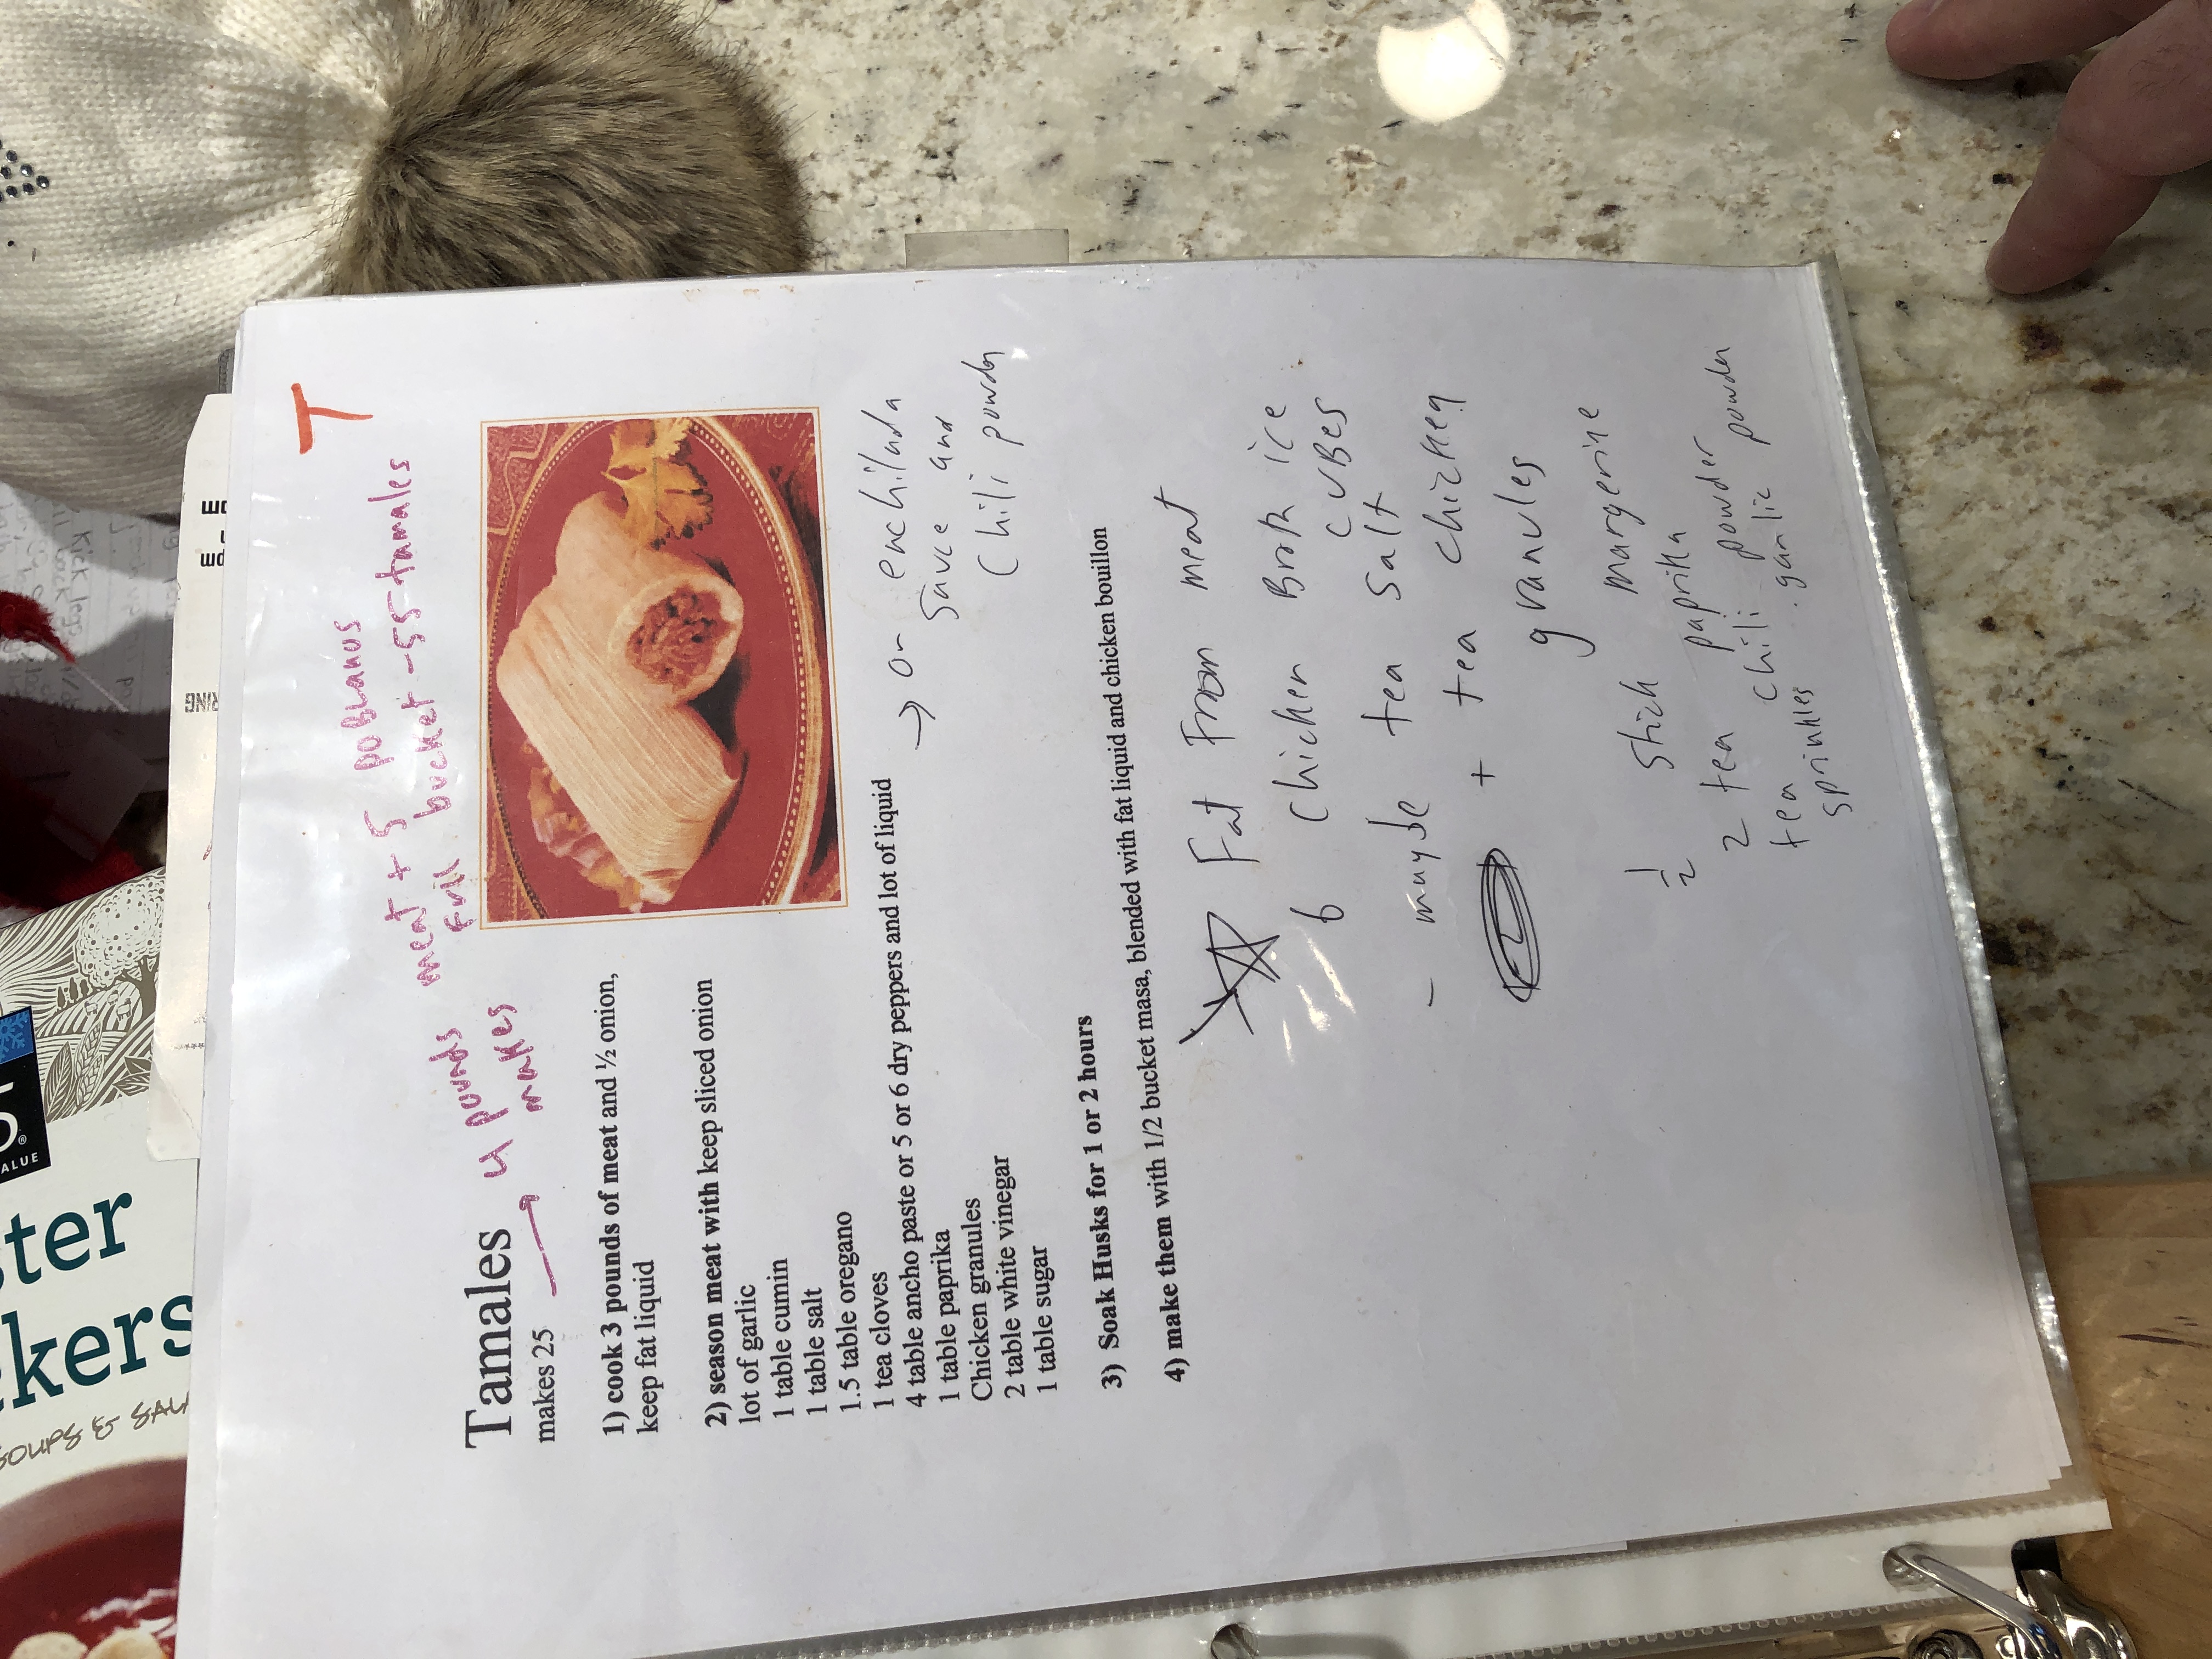 T
4 pounds meat + 5 poblanos
makes full bucket - 55 tamales
Tamales
makes 25
1) cook 3 pounds of meat and ½ onion,
keep fat liquid
2) season meat with keep sliced onion
lot of garlic
1 table cumin
1 table salt
1.5 table oregano
1 tea cloves
4 table ancho paste or 5 or 6 dry peppers and lot of liquid
→ or enchilada
sauce and
Chili powder
1 table paprika
Chicken granules
2 table white vinegar
1 table sugar
3) Soak Husks for 1 or 2 hours
4) make them with 1/2 bucket masa, blended with fat liquid and chicken bouillon
Fat From meat
6 chicken Broth ice
cubes
- maybe tea salt
+ tea chicken
granules
1/2 stick margerine
2 tea paprika
tea chili powder
sprinkles garlic powder
ster
kers
SOUPS &
ALUE
RING
pm
Kick